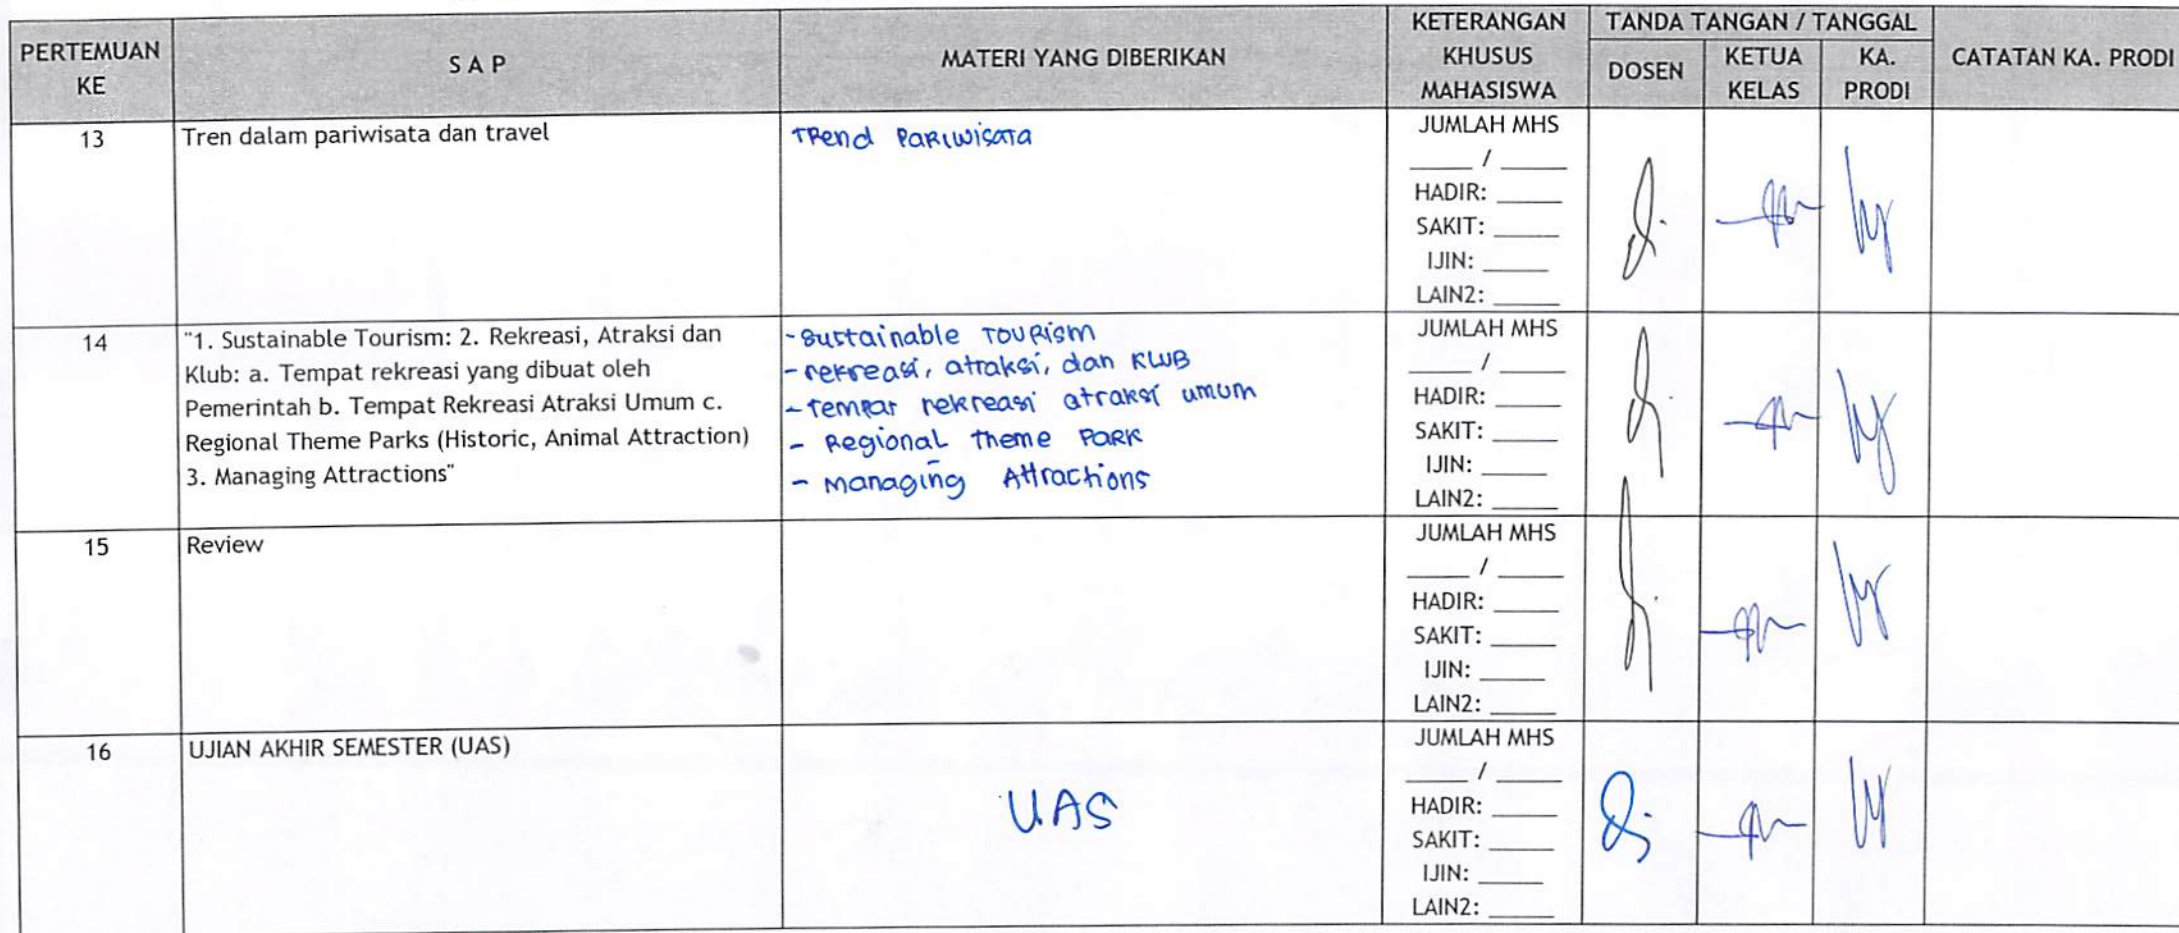 PERTEMUAN KE
S A P
MATERI YANG DIBERIKAN
KETERANGAN KHUSUS MAHASISWA
TANDA TANGAN / TANGGAL
DOSEN
KETUA KELAS
KA. PRODI
CATATAN KA. PRODI
13
Tren dalam pariwisata dan travel
Trend Pariwisata
JUMLAH MHS
____ / ____
HADIR: ____
SAKIT: ____
IJIN: ____
LAIN2: ____
14
"1. Sustainable Tourism: 2. Rekreasi, Atraksi dan
Klub: a. Tempat rekreasi yang dibuat oleh
Pemerintah b. Tempat Rekreasi Atraksi Umum c.
Regional Theme Parks (Historic, Animal Attraction)
3. Managing Attractions"
- Sustainable Tourism
- rekreasi, atraksi, dan Klub
- Tempat rekreasi atraksi umum
- Regional Theme Park
- Managing Attractions
JUMLAH MHS
____ / ____
HADIR: ____
SAKIT: ____
IJIN: ____
LAIN2: ____
15
Review
JUMLAH MHS
____ / ____
HADIR: ____
SAKIT: ____
IJIN: ____
LAIN2: ____
16
UJIAN AKHIR SEMESTER (UAS)
UAS
JUMLAH MHS
____ / ____
HADIR: ____
SAKIT: ____
IJIN: ____
LAIN2: ____